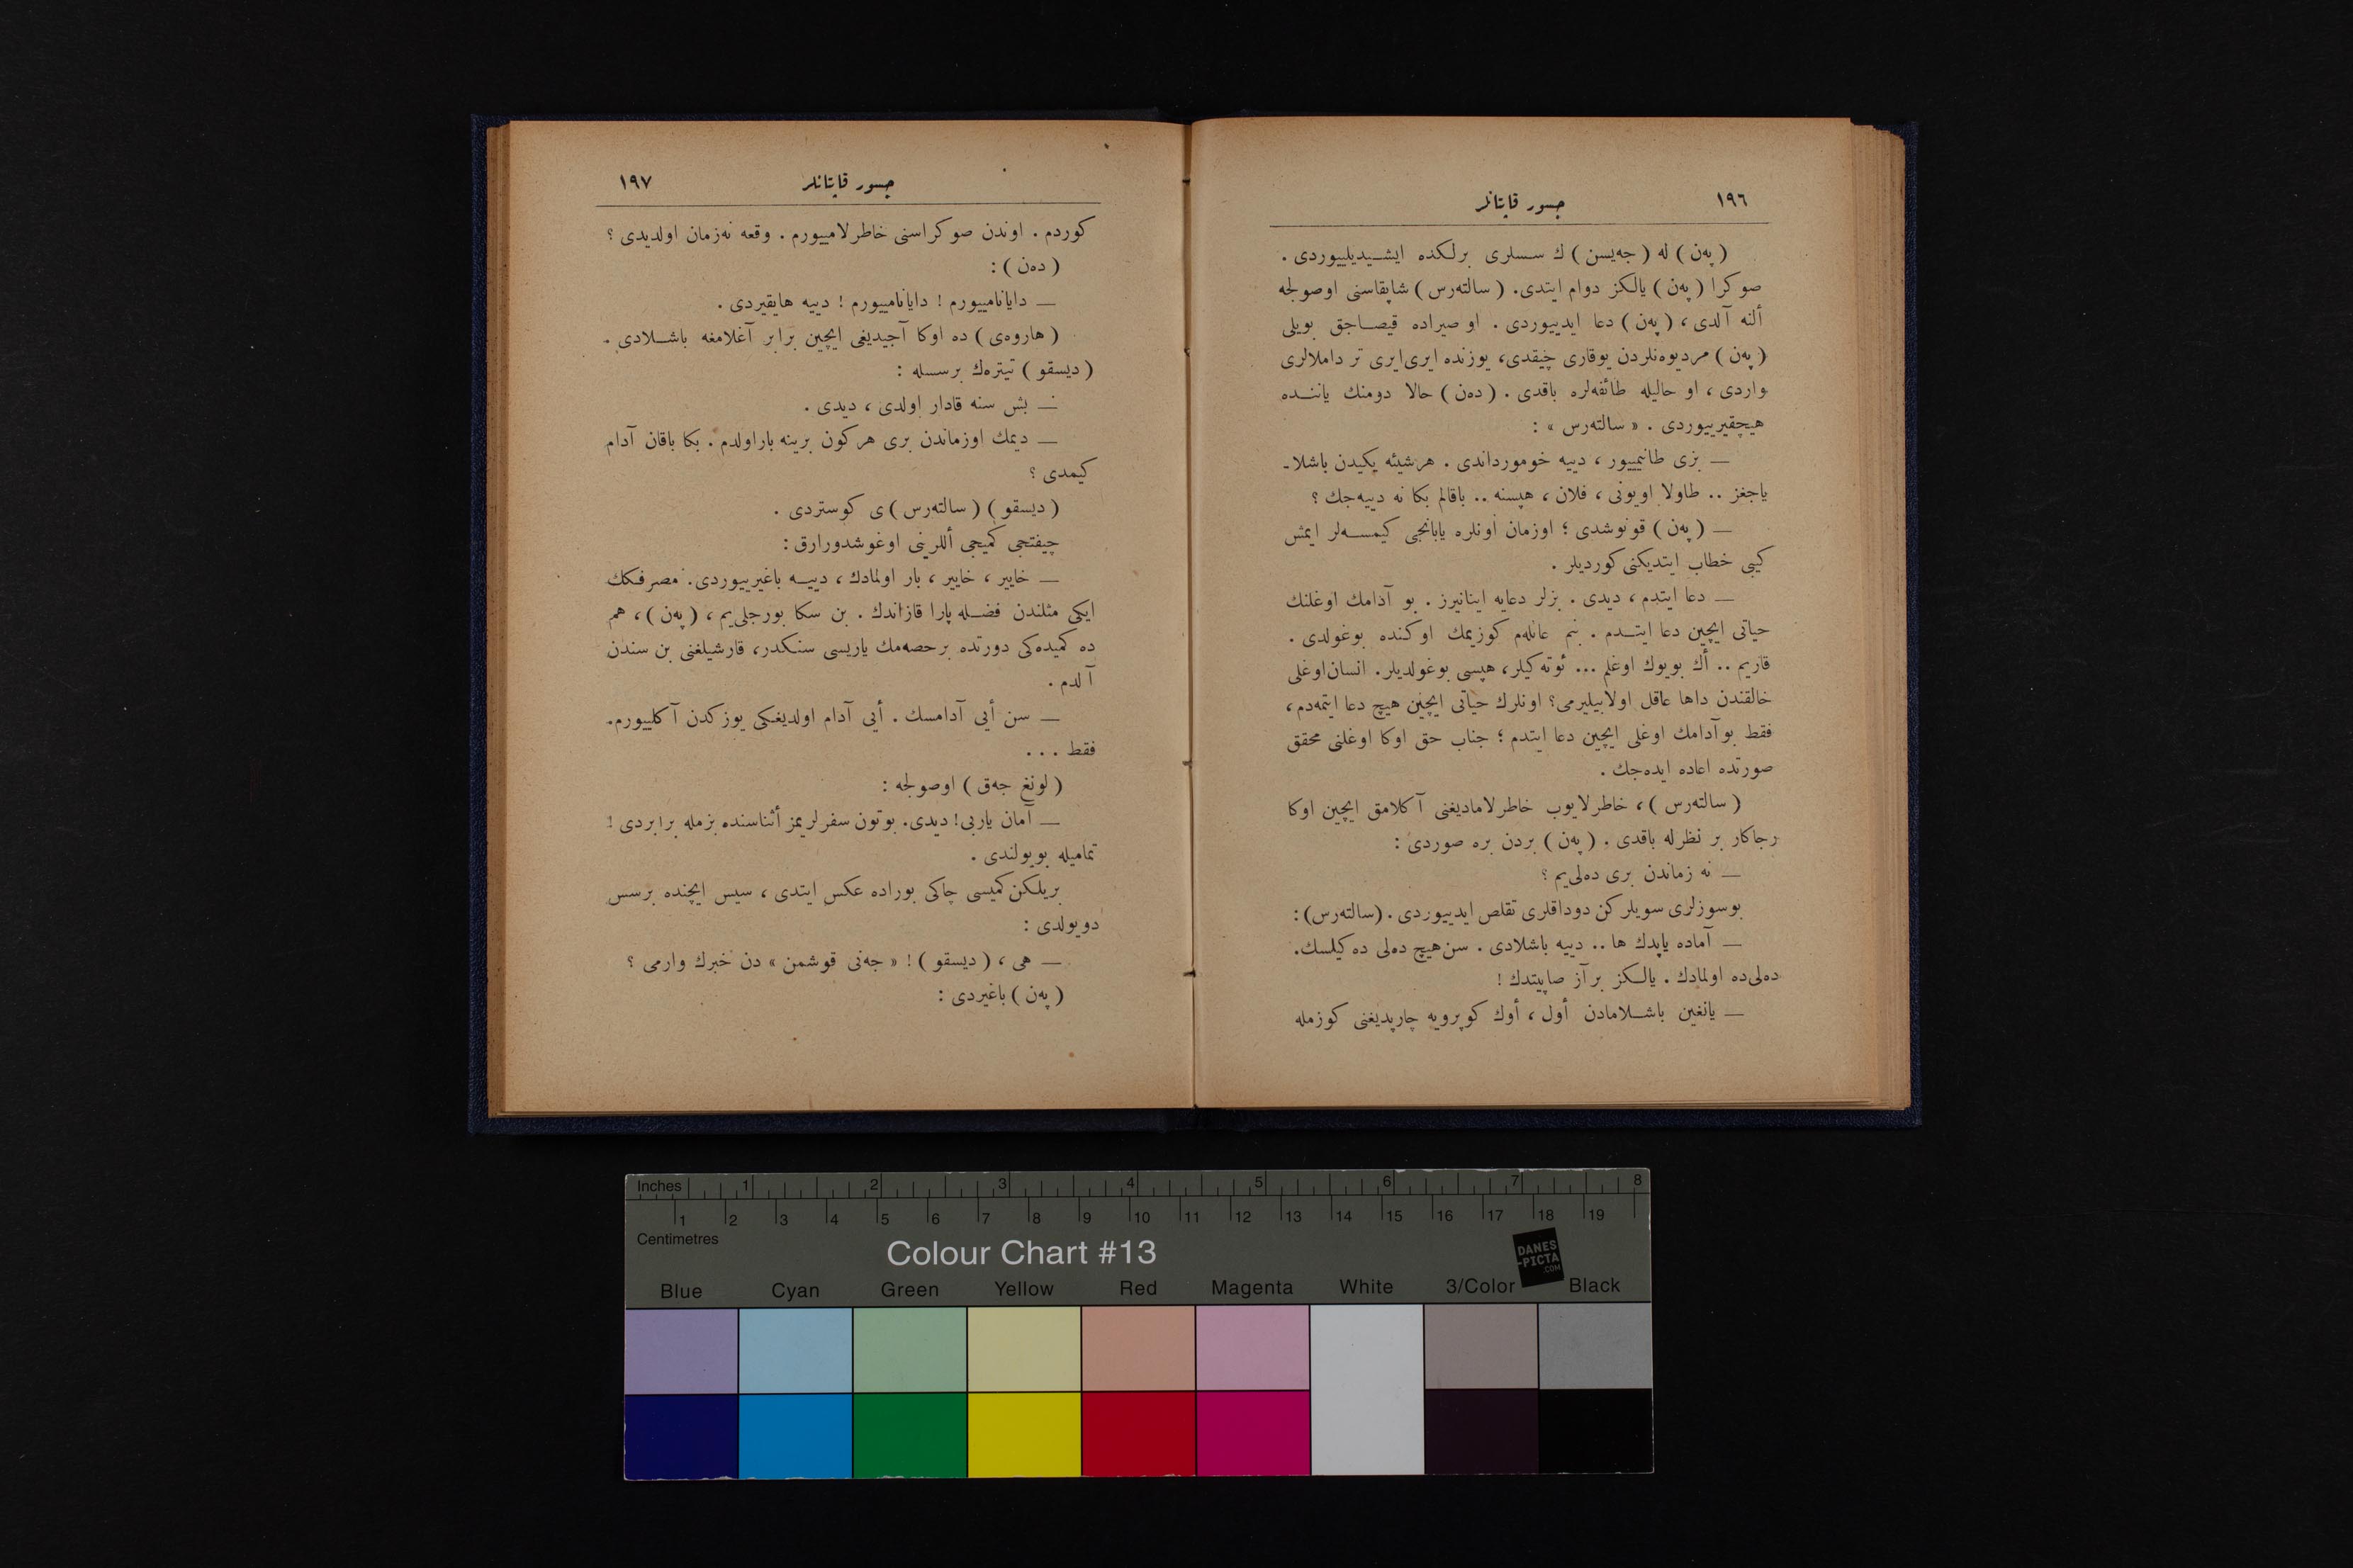 ١٩٦
جسور قاپتانلر
(پەن) لە (جەیسن) ك سسلری برلکده ایشیدیلییوردی .
صوکرا (پەن) یالکز دوام ایتدی. (سالتەرس) شاپقاسنی اوصولجه
ألنه آلدی، (پەن) دعا ایدییوردی . او صیراده قیصاجق بویلی
(پەن) مردیوەنلردن یوقاری چیقدی، یوزنده ایری‌ایری تر داملالری
واردی ، او حالیله طائفه‌لره باقدی . (دەن) حالا دومنك یاننده
هیچقیرییوردی . « سالتەرس » :
— بزی طانیمییور ، دییه خومورداندی . هرشیئه یکیدن باشلا-
یاجغز .. طاولا اویونی ، فلان ، هپسنه .. باقالم بكا نه دییه‌جك ؟
— (پەن) قونوشدی ؛ اوزمان اونلره یابانجی کیمسه‌لر ایمش
کیبی خطاب ایتدیکنی کوردیلر .
— دعا ایتدم ، دیدی . بزلر دعایه اینانیرز . بو آدامك اوغلنك
حیاتی ایچین دعا ایتدم . بنم عائله‌م کوزیمك اوکنده بوغولدی .
قاریم .. أك بویوك اوغلم ... ئوته‌کیلر، هپسی بوغولدیلر. انسان‌اوغلی
خالقندن داها عاقل اولابیلیرمی؟ اونلرك حیاتی ایچین هیچ دعا ایتمه‌دم ،
فقط بو آدامك اوغلی ایچین دعا ایتدم ؛ جناب حق اوكا اوغلنی محقق
صورتده اعاده ایده‌جك .
(سالتەرس) ، خاطرلایوب خاطرلامادیغنی آكلامق ایچین اوكا
رجاكار بر نظرله باقدی . (پەن) بردن بره صوردی :
— نه زماندن بری ده‌لی‌یم ؟
بوسوزلری سویلركن دوداقلری تقلص ایدییوردی . (سالتەرس) :
— آماده یاپدك ها .. دییه باشلادی . سن هیچ ده‌لی ده كیلسك.
ده‌لی‌ده اولمادك . یالکز بر آز صاپیتدك !
— یانغین باشلامادن أول ، أوك كوپرویه چارپدیغنی كوزمله
١٩٧
جسور قاپتانلر
كوردم . اوندن صوكراسنی خاطرلامییورم . وقعه نه‌زمان اولدیدی ؟
(دەن) :
— دایانامییورم ! دایانامییورم ! دییه هایقیردی .
(هاروەی) ده اوكا آجیدیغی ایچین برابر آغلامغه باشلادی .
(دیسقو) تیتره‌ك برسسله :
— بش سنه قادار اولدی ، دیدی .
— دیمك اوزماندن بری هركون برینه باراولدم . بكا باقان آدام
كیمدی ؟
(دیسقو) (سالتەرس) ی كوستردی .
چیفتجی كمیجی أللرینی اوغوشدورارق :
— خاییر ، خاییر ، بار اولمادك ، دییه باغیرییوردی . مصرفكك
ایكی مثلندن فضله پارا قازاندك . بن سكا بورجلی‌یم ، (پەن) ، هم
ده كمیده‌كی دورتده برحصه‌مك یاریسی سنكدر، قارشیلغنی بن سندن
آلدم .
— سن أیی آدامسك . أیی آدام اولدیغكی یوزكدن آكلییورم.
فقط ...
(لونغ جەق) اوصولجه :
— آمان یاربی! دیدی. بوتون سفرلریمز أثناسنده بزمله برابردی !
تمامیله بویولندی .
بریلكن كمیسی چاكی بوراده عكس ایتدی ، سیس ایچنده برسس
دویولدی :
— هی ، (دیسقو) ! « جەنی قوشمن » دن خبرك وارمی ؟
(پەن) باغیردی :
Inches 1 2 3 4 5 6 7 8
1 2 3 4 5 6 7 8 9 10 11 12 13 14 15 16 17 18 19
Centimetres
Colour Chart #13
DANES
-PICTA
.COM
Blue Cyan Green Yellow Red Magenta White 3/Color Black